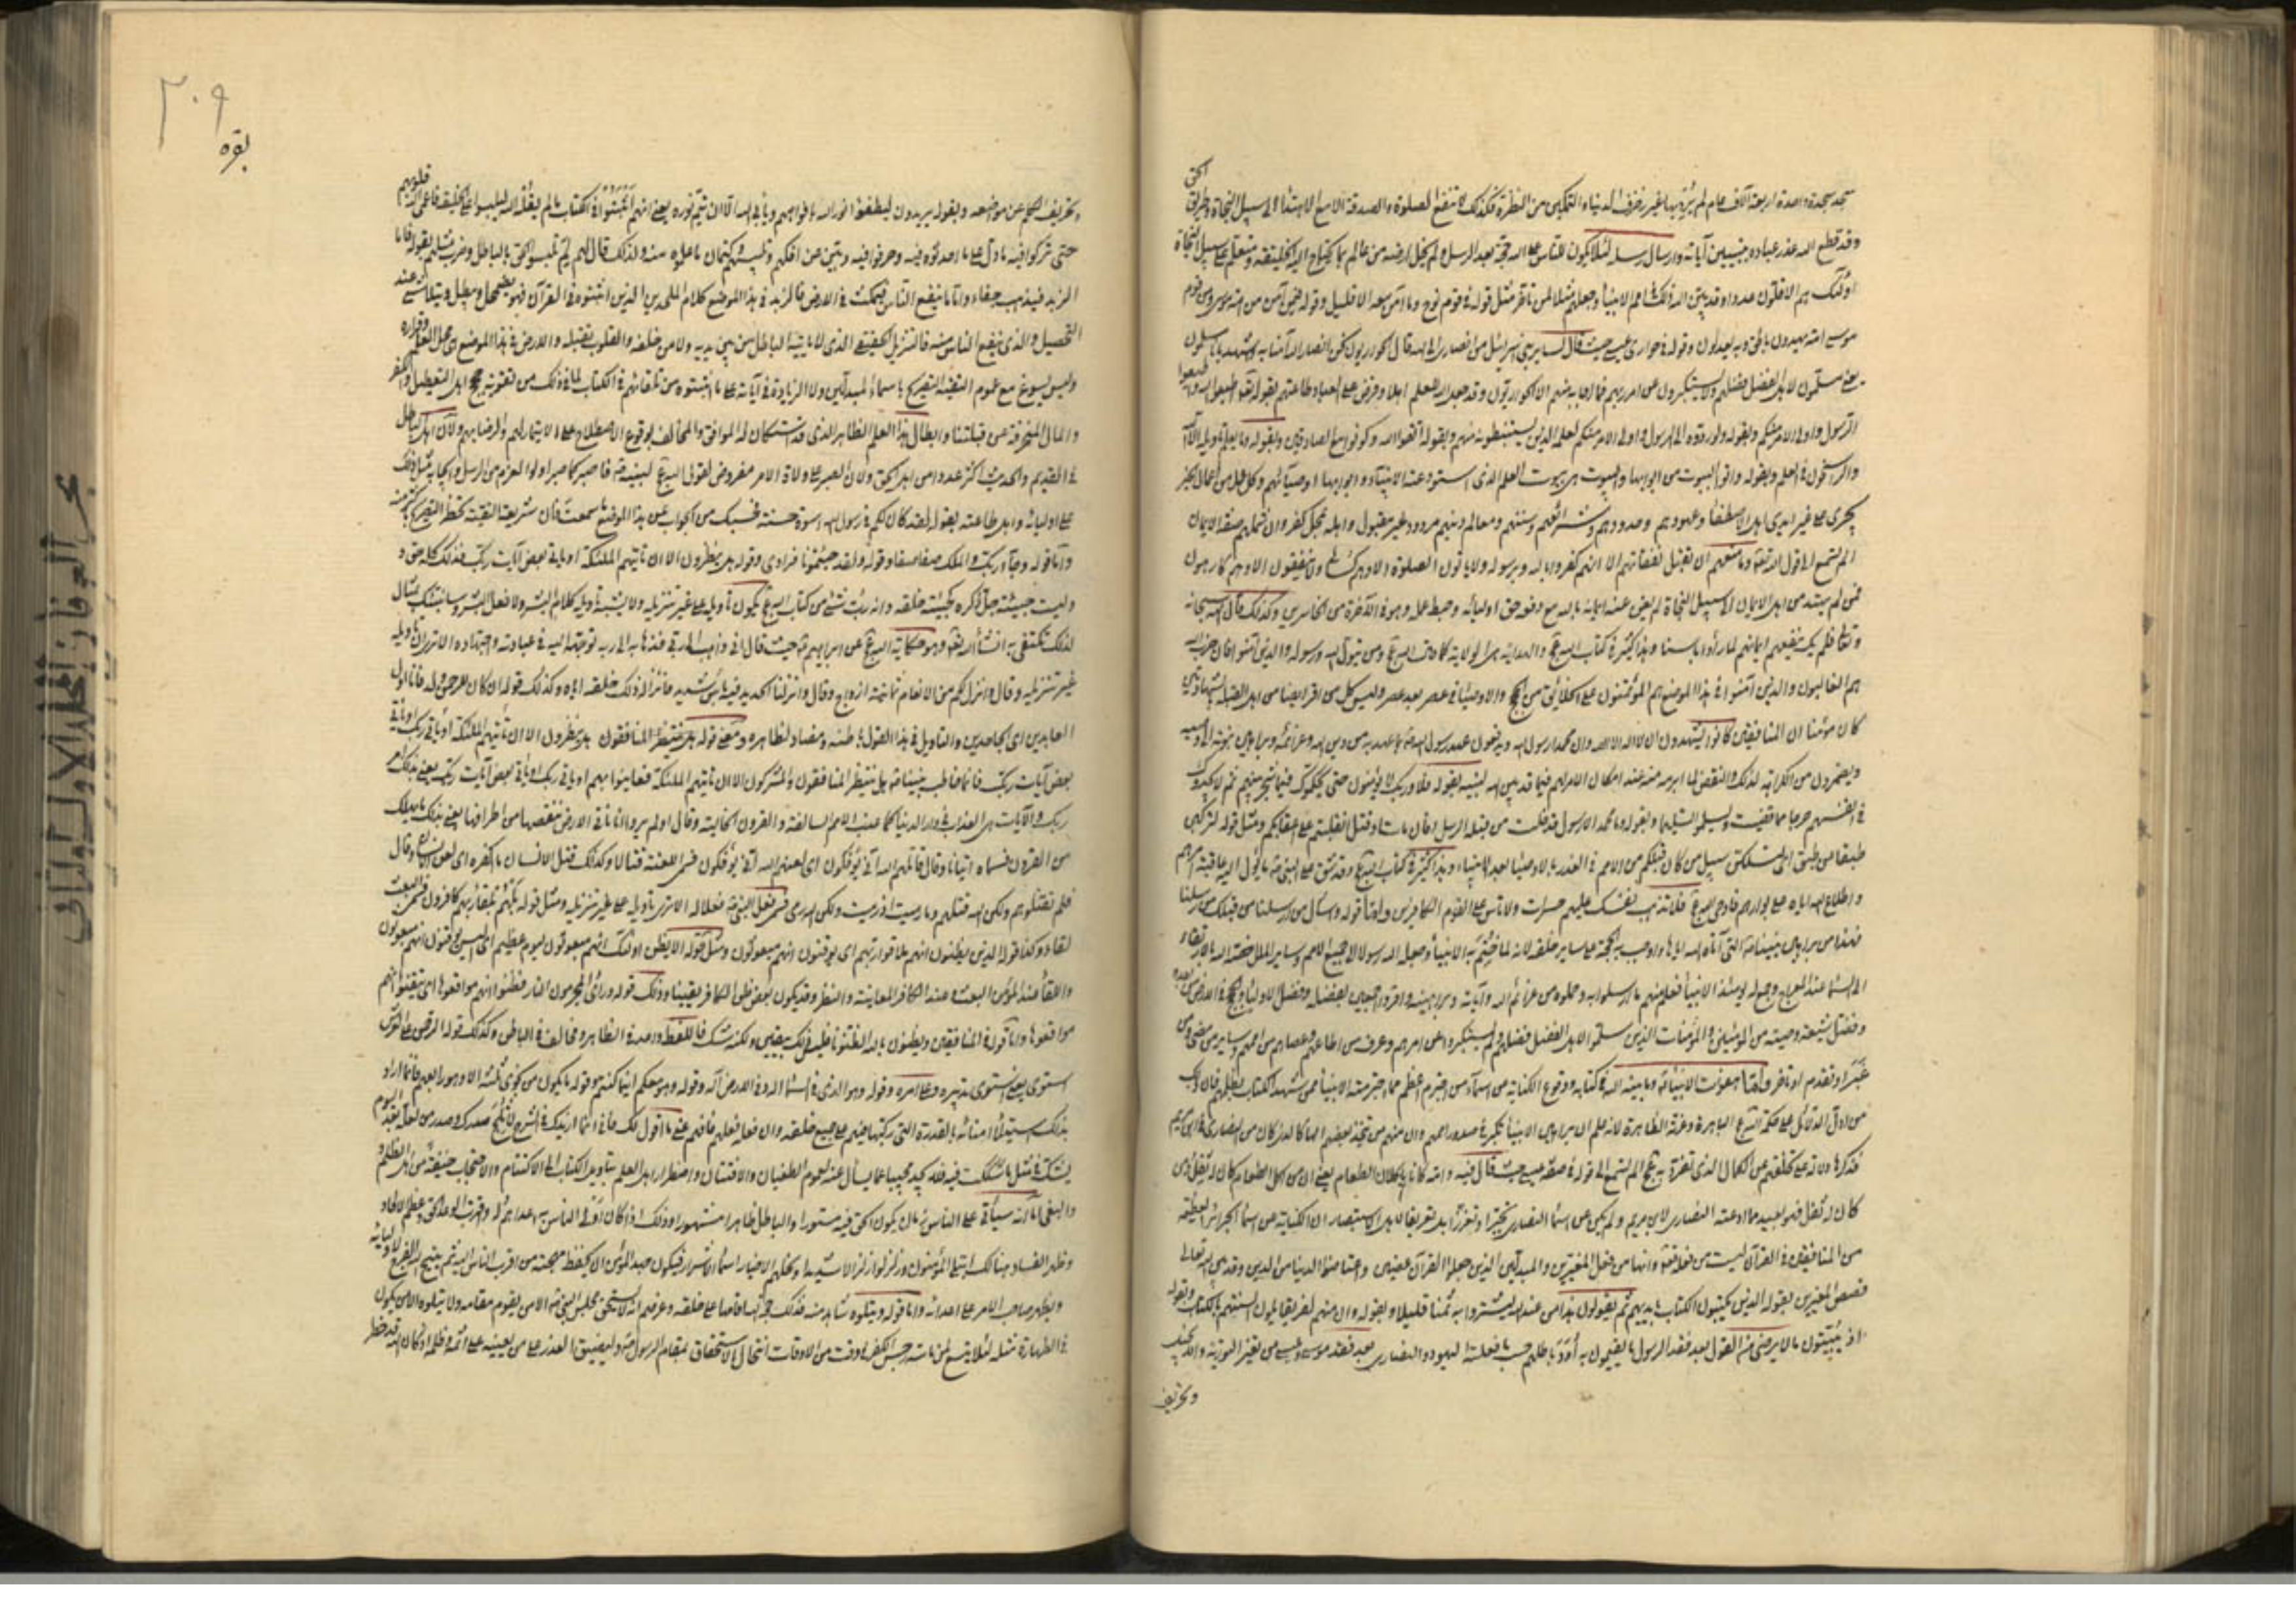 سجد سجدة واحدة اربعة آلاف عام لم يرد بها غير زخرف الدنيا والتمكين من النظرة فكذلك لا تنفع الصلوة والصدقة الا مع الاهتداء الى سبيل النجاة وطريق الحق
وقد قطع الله عذر عباده بتبيين آياته وارسال رسله لئلا يكون للناس على الله حجة بعد الرسل ولم يخل ارضه من عالم بما يحتاج اليه الخليقة ومتعلم على سبيل النجاة
اولئك هم الاقلون عددا وقد بين الله ذلك في امم الانبياء وجعلهم مثلا لمن تاخر مثل قوله في قوم نوح وما آمن معه الا قليل وقوله فيمن آمن من امة موسى ومن قوم
موسى امة يهدون بالحق وبه يعدلون وقوله في حواري عيسى حيث قال لساير بني اسرائيل من انصاري الى الله قال الحواريون نحن انصار الله آمنا بالله واشهد بانا مسلمون
يعني مسلمون لاهل الفضل فضلهم ولا يستكبرون عن امر ربهم فما اجابه منهم الا الحواريون وقد جعل الله للعلم اهلا وفرض على العباد طاعتهم بقوله اطيعوا الله واطيعوا
الرسول واولى الامر منكم وبقوله ولو ردوه الى الرسول والى اولى الامر منكم لعلمه الذين يستنبطونه منهم وبقوله اتقوا الله وكونوا مع الصادقين وبقوله وما يعلم تاويله الا الله
والراسخون في العلم وبقوله واتوا البيوت من ابوابها والبيوت هي بيوت العلم الذي استودعته الانبياء وابوابها اوصياؤهم وكل عمل من اعمال الخير
يجري على غير ايدي اهل الاصطفا وعهودهم وحدودهم وشرايعهم وسننهم ومعالم دينهم مردود غير مقبول واهله بمحل كفر وان شملهم صفة الايمان
الم تسمع الى قول الله تعالى وما منعهم ان تقبل نفقاتهم الا انهم كفروا بالله وبرسوله ولا ياتون الصلوة الا وهم كسالى ولا ينفقون الا وهم كارهون
فمن لم يهتد من اهل الايمان الى سبيل النجاة لم يغن عنه ايمانه بالله مع دفع حق اوليائه وحبط عمله وهو في الآخرة من الخاسرين وكذلك قال الله سبحانه
فلم يك ينفعهم ايمانهم لما رأوا باسنا وهذا كثير في كتاب الله والهداية هي الولاية كما قال الله ومن يتول الله ورسوله والذين آمنوا فان حزب الله
هم الغالبون والذين آمنوا في هذا الموضع هم المؤتمنون على الخلائق من الحجج والاوصياء في عصر بعد عصر وليس كل من اقر ايضا من اهل القبلة بالشهادتين
كان مؤمنا ان المنافقين كانوا يشهدون ان لا اله الا الله وان محمدا رسول الله ويدفعون عهد رسول الله بما عهد به من دين الله وعزائمه وبراهين نبوته الى وصيه
ويضمرون من الكراهة لذلك والنقض لما ابرمه منه عند امكان الامر لهم فيما قد بين الله لنبيه بقوله فلا وربك لا يؤمنون حتى يحكموك فيما شجر بينهم ثم لا يجدوا
في انفسهم حرجا مما قضيت ويسلموا تسليما وبقوله وما محمد الا رسول قد خلت من قبله الرسل افان مات او قتل انقلبتم على اعقابكم ومثل قوله لتركبن
طبقا عن طبق اي لتسلكن سبيل من كان قبلكم من الامم في الغدر بالاوصياء بعد الانبياء وهذا كثير في كتاب الله وقد شق على النبي ما يؤول اليه عاقبة امرهم
واطلاع الله اياه على بوارهم فاوحى الله فلا تذهب نفسك عليهم حسرات ولا تاس على القوم الكافرين واما قوله واسأل من ارسلنا من قبلك من رسلنا
فهذا من براهين نبينا التي آتاه الله اياها واوجب به الحجة على ساير خلقه لانه لما ختم به الانبياء وجعله الله رسولا الى جميع الامم وساير الملل خصه الله بالارتقاء
الى السماء عند المعراج وجمع له يومئذ الانبياء فعلم منهم ما ارسلوا به وحملوه من عزائم الله وآياته وبراهينه واقروا اجمعين بفضله وفضل الاوصياء والحجج في الارض من بعده
وفضل شيعة وصيه من المؤمنين والمؤمنات الذين سلموا لاهل الفضل فضلهم ولم يستكبروا عن امرهم وعرف من اطاعهم وعصاهم من اممهم وساير من مضى ومن
غبر او تقدم او تاخر واما هفوات الانبياء وما بينه الله في كتابه ووقوع الكناية من اسماء من اجترم اعظم مما اجترمته الانبياء ممن شهد الكتاب بظلمهم فان ذلك
من ادل الدلائل على حكمة الله الباهرة وعزته الظاهرة لانه علم ان براهين الانبياء تكبر في صدور اممهم وان منهم من يتخذ بعضهم الها كالذي كان من النصارى في ابن مريم
فذكرها دلالة على تخلفهم عن الكمال الذي تفرد به الم تسمع الى قوله في صفة عيسى حيث قال فيه وفي امه كانا ياكلان الطعام يعني ان من اكل الطعام كان له ثفل ومن
كان له ثفل فهو بعيد مما ادعته النصارى لابن مريم ولم يكن عن اسماء الانبياء تجبرا وتعززا بل تعريفا لاهل الاستبصار ان الكناية عن اسماء الجرائر العظيمة
من المنافقين في القرآن ليست من فعله تعالى وانها من فعل المغيرين والمبدلين الذين جعلوا القرآن عضين واعتاضوا الدنيا من الدين وقد بين الله تعالى
قصص المغيرين بقوله الذين يكتبون الكتاب بايديهم ثم يقولون هذا من عند الله ليشتروا به ثمنا قليلا وبقوله وان منهم لفريقا يلون السنتهم بالكتاب وبقوله
اذ يبيتون ما لا يرضى من القول بعد فقد الرسول ما يقيمون به اود باطلهم حسب ما فعلته اليهود والنصارى بعد فقد موسى وعيسى من تغيير التورية والانجيل
وتحريف
٢٠٩
بقره
وتحريف الكلم عن مواضعه وبقوله يريدون ليطفئوا نور الله بافواههم ويأبى الله الا ان يتم نوره يعني انهم اثبتوا في الكتاب ما لم يقله الله ليلبسوا على الخليقة فاعمى الله قلوبهم
حتى تركوا فيه ما دل على ما احدثوه فيه وحرفوا فيه وبين عن افكهم وتلبيسهم وكتمان ما علموه منه ولذلك قال لهم لم تلبسون الحق بالباطل وضرب مثلهم بقوله فاما
الزبد فيذهب جفاء واما ما ينفع الناس فيمكث في الارض فالزبد في هذا الموضع كلام الملحدين الذين اثبتوه في القرآن فهو يضمحل ويبطل ويتلاشى عند
التحصيل والذي ينفع الناس منه فالتنزيل الحقيقي الذي لا ياتيه الباطل من بين يديه ولا من خلفه والقلوب تقبله والارض في هذا الموضع هي محل العلم وقراره
وليس يسوغ مع عموم التقية التصريح باسماء المبدلين ولا الزيادة في آياته على ما اثبتوه من تلقائهم في الكتاب لما في ذلك من تقوية حجج اهل التعطيل والكفر
والملل المنحرفة عن قبلتنا وابطال هذا العلم الظاهر الذي قد استكان له الموافق والمخالف بوقوع الاصطلاح على الايتمار لهم والرضا بهم ولان اهل الباطل
في القديم والحديث اكثر عددا من اهل الحق ولان الصبر على ولاة الامر مفروض لقول الله لنبيه فاصبر كما صبر اولوا العزم من الرسل وايجابه مثل ذلك
على اوليائه واهل طاعته بقوله لقد كان لكم في رسول الله اسوة حسنة فحسبك من الجواب عن هذا الموضع ما سمعت فان شريعة التقية تحظر التصريح باكثر منه
واما قوله وجاء ربك والملك صفا صفا وقوله ولقد جئتمونا فرادى وقوله هل ينظرون الا ان تاتيهم الملئكة او ياتي بعض آيات ربك فذلك كله حق
وليست جيئته جل ذكره كجيئة خلقه وانه رب شيء من كتاب الله يكون تأويله على غير تنزيله ولا يشبه تأويله كلام البشر ولا فعل البشر وسانبئك بمثال
لذلك تكتفي به ان شاء الله وهو حكاية الله عن ابراهيم حيث قال اني ذاهب الى ربي فذهابه الى ربه توجهه اليه في عبادته واجتهاده الا ترى ان تأويله
غير تنزيله وقال وانزل لكم من الانعام ثمانية ازواج وقال وانزلنا الحديد فيه بأس شديد فانزاله ذلك خلقه اياه وكذلك قوله ان كان للرحمن ولد فانا اول
العابدين اي الجاحدين والتاويل في هذا القول باطنه ومضاد لظاهره ومعنى قوله هل ينظر المنافقون هل ينظرون الا ان تأتيهم الملئكة او يأتي ربك او ياتي
بعض آيات ربك فانما خاطب نبينا هل ينتظر المنافقون والمشركون الا ان تاتيهم الملئكة فيعاينوهم او ياتي ربك او ياتي بعض آيات ربك يعني بذلك امر
ربك والآيات هي العذاب في دار الدنيا كما عذب الامم السالفة والقرون الخالية وقال اولم يروا انا ناتي الارض ننقصها من اطرافها يعني بذلك ما يهلك
من القرون فسماه اتيانا وقال قاتلهم الله انى يؤفكون اي لعنهم الله انى يؤفكون فسمى اللعنة قتالا وكذلك قتل الانسان ما اكفره اي لعن الانسان وقال
فلم تقتلوهم ولكن الله قتلهم وما رميت اذ رميت ولكن الله رمى فسمى فعل النبي فعلا له الا ترى تأويله على غير تنزيله ومثل قوله بل هم بلقاء ربهم كافرون فسمى البعث
لقاء وكذا قوله الذين يظنون انهم ملاقوا ربهم اي يوقنون انهم مبعوثون ومثل قوله الا يظن اولئك انهم مبعوثون ليوم عظيم اي اليس يوقنون انهم مبعوثون
واللقاء عند المؤمن البعث وعند الكافر المعاينة والنظر وقد يكون بعض ظن الكافر يقينا وذلك قوله وراى المجرمون النار فظنوا انهم مواقعوها اي تيقنوا انهم
مواقعوها واما قوله في المنافقين ويظنون بالله الظنونا فليس ذلك بيقين ولكنه شك فاللفظ واحد في الظاهر ومخالف في الباطن وكذلك قوله الرحمن على العرش
استوى يعني استوى تدبيره وعلا امره وقوله وهو الذي في السماء اله وفي الارض اله وقوله وهو معكم اينما كنتم وقوله ما يكون من نجوى ثلثة الا هو رابعهم فانما اراد
بذلك استيلاء امنائه بالقدرة التي ركبها فيهم على جميع خلقه وان فعله فعلهم فافهم عني ما اقول لك فاني انما ازيدك في الشرح لاثلج صدرك وصدر من لعله بعد اليوم
يشك في مثل ما شككت فيه فلا يجد مجيبا عما يسأل عنه لعموم الطغيان والافتتان واضطرار اهل العلم بتاويل الكتاب الى الاكتتام والاحتجاب خيفة من اهل الظلم
والبغي اما انه سيأتي على الناس زمان يكون الحق فيه مستورا والباطل ظاهرا مشهورا وذلك اذا كان اولى الناس به اعداهم له واقترب الوعد الحق وعظم الالحاد
وظهر الفساد هنالك ابتلي المؤمنون وزلزلوا زلزالا شديدا ونحلهم الاخيار اسماء الاشرار فيكون جهد المؤمن ان يحفظ مهجته من اقرب الناس اليه ثم يتيح الله الفرج لاوليائه
ويظهر صاحب الامر على اعدائه واما قوله ويتلوه شاهد منه فذلك حجة الله اقامها على خلقه وعرفهم انه لا يستحق مجلس النبي الا من يقوم مقامه ولا يتلوه الا من يكون
في الطهارة مثله لئلا يتسع لمن ماسه رجس الكفر في وقت من الاوقات انتحال الاستحقاق بمقام الرسول وليضيق العذر على من يعينه على اثمه وظلمه اذ كان الله قد حظر
بحر العرفان المجلد الاول